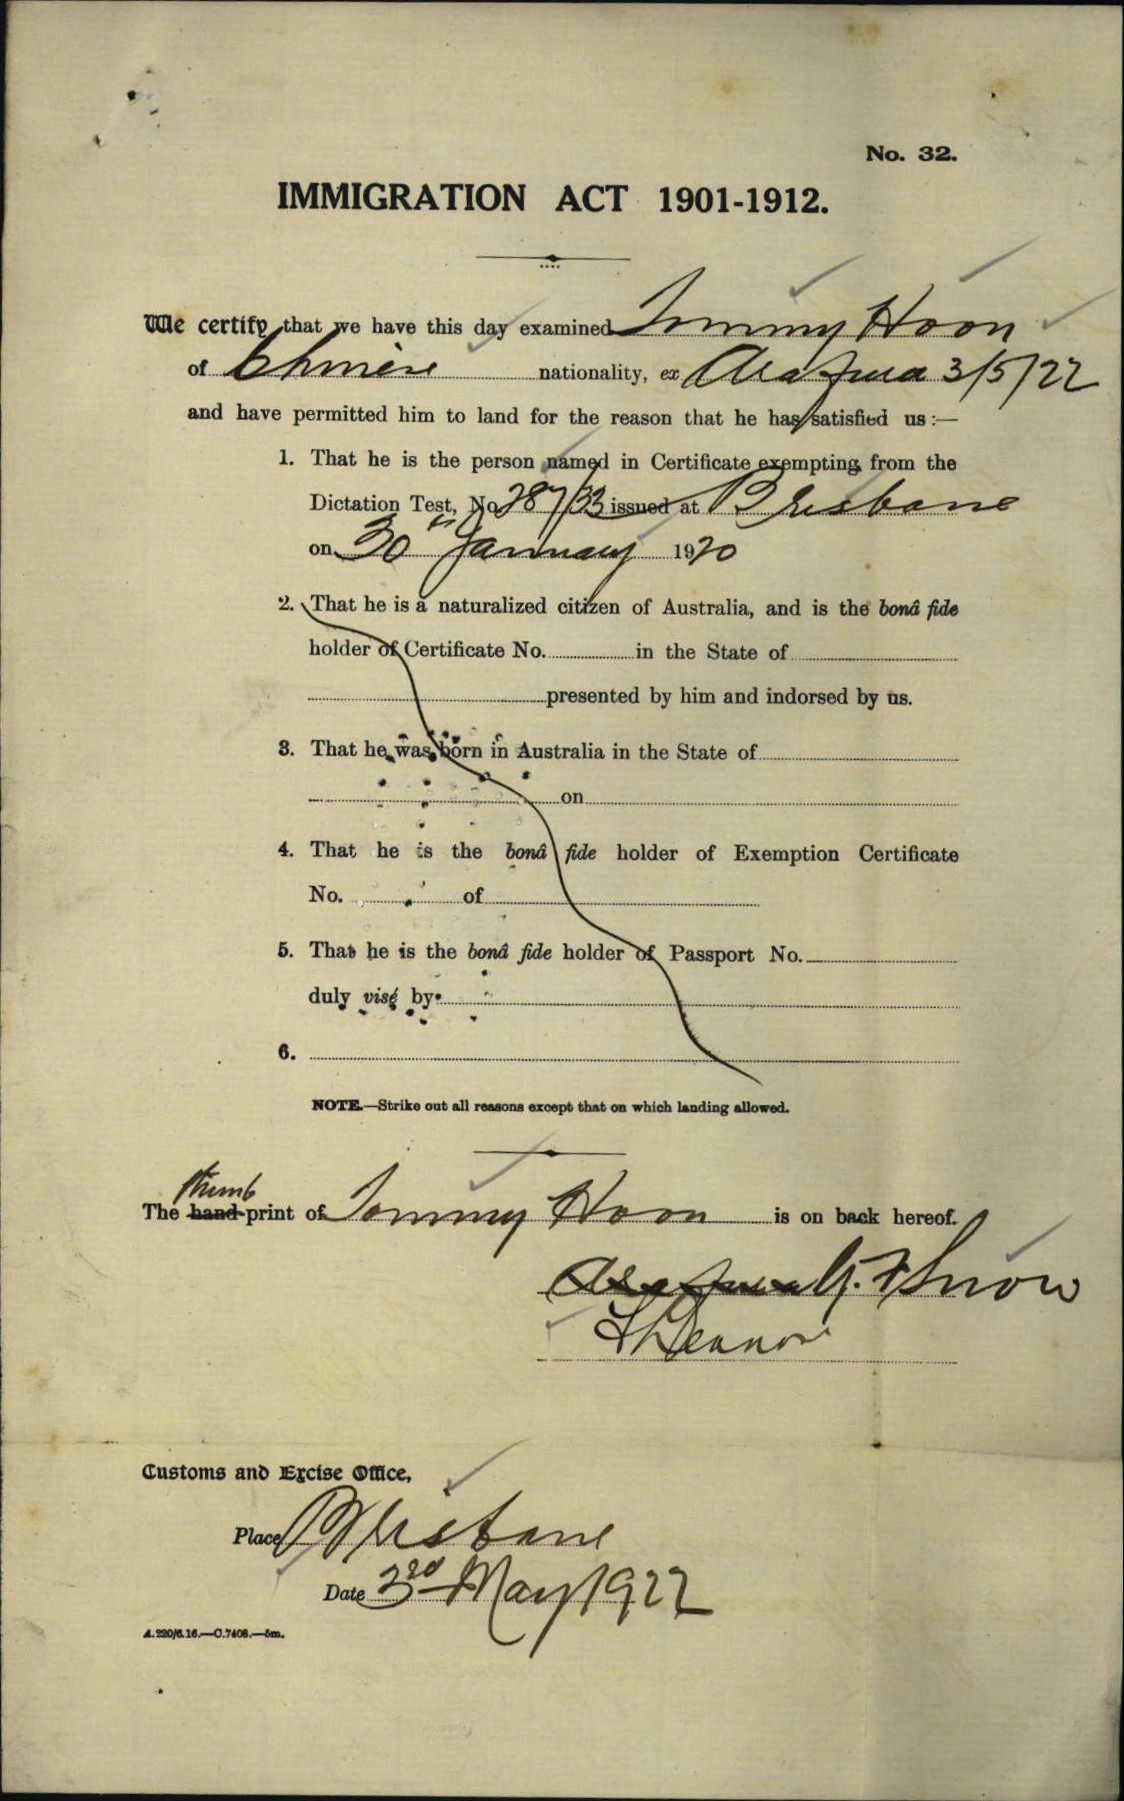 No. 32.
IMMIGRATION ACT 1901-1912.
We certify that we have this day examined Tommy Hoon
of Chinese nationality, ex Arafura 3/5/22
and have permitted him to land for the reason that he has satisfied us :—
1. That he is the person named in Certificate exempting from the
Dictation Test, No 287/33 issued at Brisbane
on 30th January 1920
2. That he is a naturalized citizen of Australia, and is the bonâ fide
holder of Certificate No. in the State of
presented by him and indorsed by us.
3. That he was born in Australia in the State of
on
4. That he is the bonâ fide holder of Exemption Certificate
No. of
5. That he is the bonâ fide holder of Passport No.
duly visé by
6.
NOTE.—Strike out all reasons except that on which landing allowed.
thumb
The hand-print of Tommy Hoon is on back hereof.
Arafura G. F Snow
Customs and Excise Office,
Place Brisbane
Date 3rd May 1922
A.220/6.16.—C.7408.—5m.